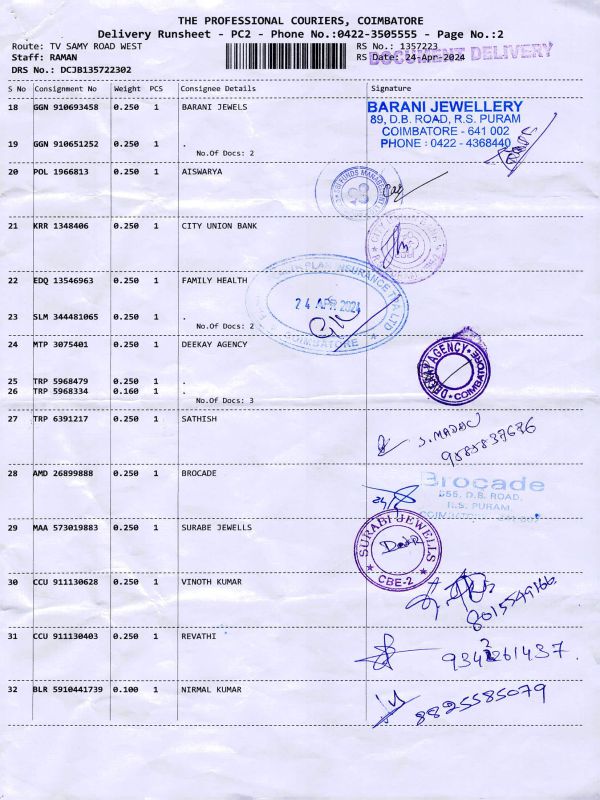 THE PROFESSIONAL COURIERS, COIMBATORE
Delivery Runsheet - PC2 - Phone No.:0422-3505555 - Page No.:2
Route: TV SAMY ROAD WEST RS No.: 1357223
Staff: RAMAN RS Date: 24-Apr-2024 DOCUMENT DELIVERY
DRS No.: DCJB135722302
S No Consignment No Weight PCS Consignee Details Signature
18 GGN 910693458 0.250 1 BARANI JEWELS
BARANI JEWELLERY
89, D.B. ROAD, R.S. PURAM
COIMBATORE - 641 002
PHONE : 0422 - 4368440
19 GGN 910651252 0.250 1 .
No.Of Docs: 2
20 POL 1966813 0.250 1 AISWARYA
21 KRR 1348406 0.250 1 CITY UNION BANK
22 EDQ 13546963 0.250 1 FAMILY HEALTH
24 APR 2024
COIMBATORE
23 SLM 344481065 0.250 1 .
No.Of Docs: 2
24 MTP 3075401 0.250 1 DEEKAY AGENCY
DEEKAY AGENCY
COIMBATORE
25 TRP 5968479 0.250 1 .
26 TRP 5968334 0.160 1 .
No.Of Docs: 3
27 TRP 6391217 0.250 1 SATHISH
28 AMD 26899888 0.250 1 BROCADE
Brocade
555, D.B. ROAD,
R.S. PURAM,
29 MAA 573019883 0.250 1 SURABE JEWELLS
SURABI JEWELLS
CBE-2
30 CCU 911130628 0.250 1 VINOTH KUMAR
8015549166
31 CCU 911130403 0.250 1 REVATHI
32 BLR 5910441739 0.100 1 NIRMAL KUMAR
8825585079